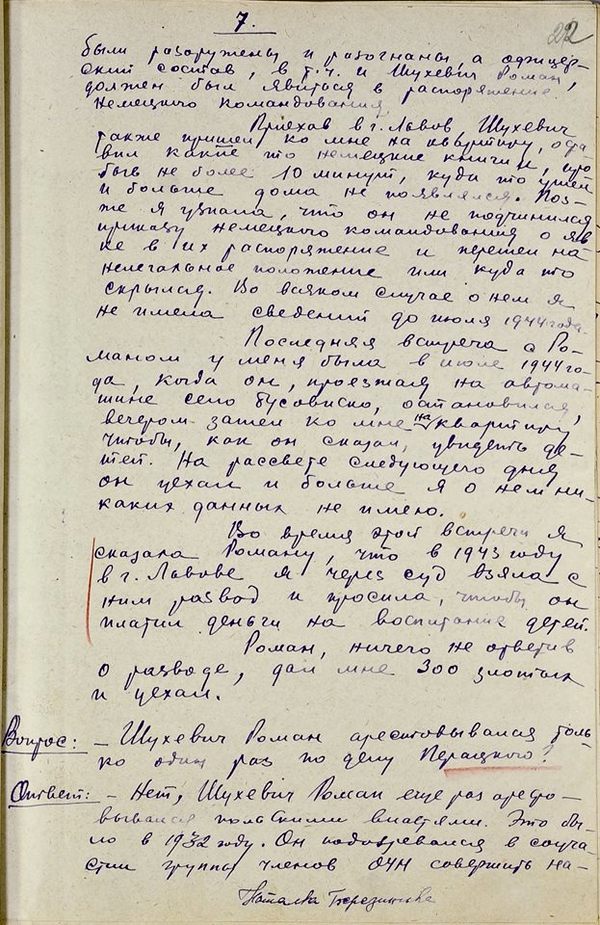 7.
22
были разоружены и разогнаны, а офицер-
ский состав, в т.ч. и Шухевич Роман,
должен был явиться в распоряжение
немецкого командования.
Приехав в г. Львов, Шухевич
также пришел ко мне на квартиру, оста-
вил какие то немецкие книги и, про
быв не более 10 минут, куда то ушел
и больше дома не появлялся. Поз-
же я узнала, что он не подчинился
приказу немецкого командования о яв
ке в их распоряжение и перешел на
нелегальное положение или куда то
скрылся. Во всяком случае о нем я
не имела сведений до июля 1944 года
Последняя встреча с Ро-
маном у меня была в июле 1944 го-
да, когда он, проезжая на автома-
шине село Бусовиско, остановился,
вечером зашел ко мне на квартиру
чтобы, как он сказал, увидеть де-
тей. На рассвете следующего дня
он уехал и больше я о нем ни-
каких данных не имею.
Во время этой встречи я
сказала Роману, что в 1943 году
в г. Львове я через суд взяла с
ним развод и просила, чтобы он
платил деньги на воспитание детей.
Роман, ничего не ответив
о разводе, дал мне 300 злотых
и уехал.
Вопрос: – Шухевич Роман арестовывался толь-
ко один раз по делу Перацкого?
Ответ: – Нет, Шухевич Роман еще раз аресто-
вывался польскими властями. Это бы-
ло в 1932 году. Он подозревался в соуча-
стии группы членов ОУН совершить на-
Наталка Березинська